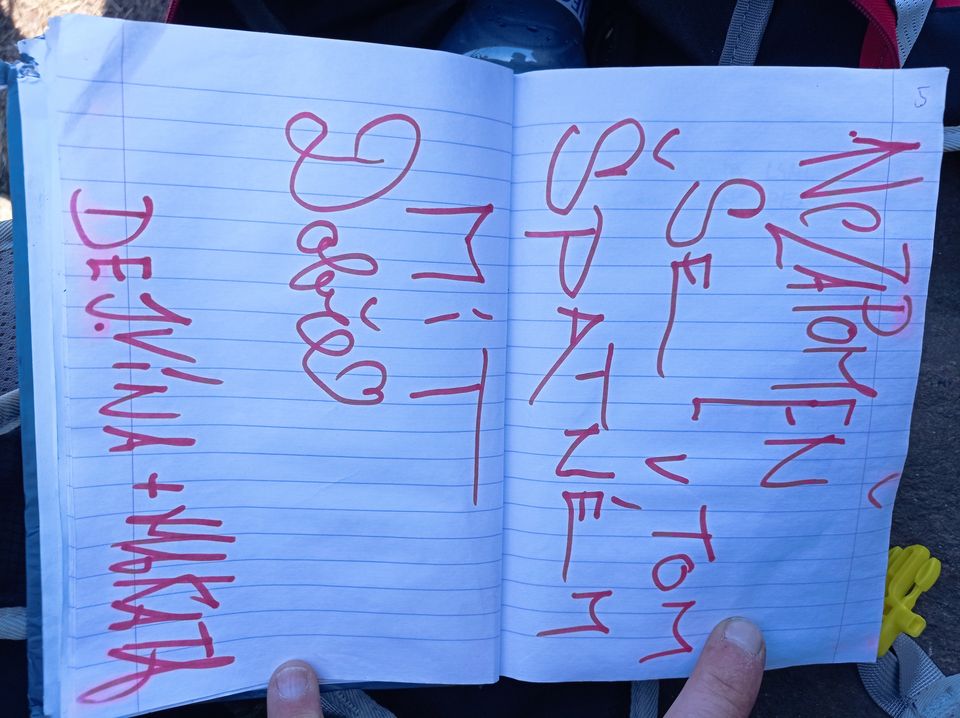 NeZAPOMEŇ
SE I V TOM
ŠPATNÉM
MÍT
Dobře
DEJVINA +
5